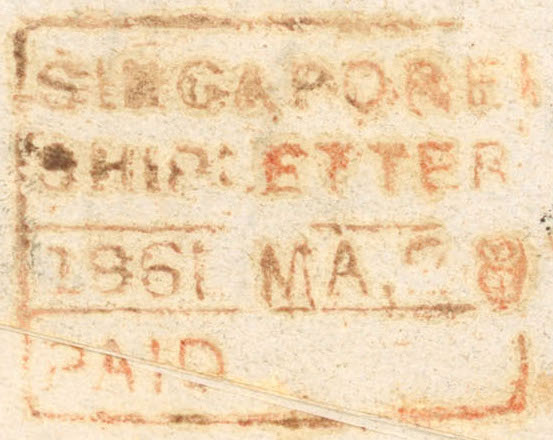 SINGAPORE
SHIP LETTER
1861 MA. 28
PAID